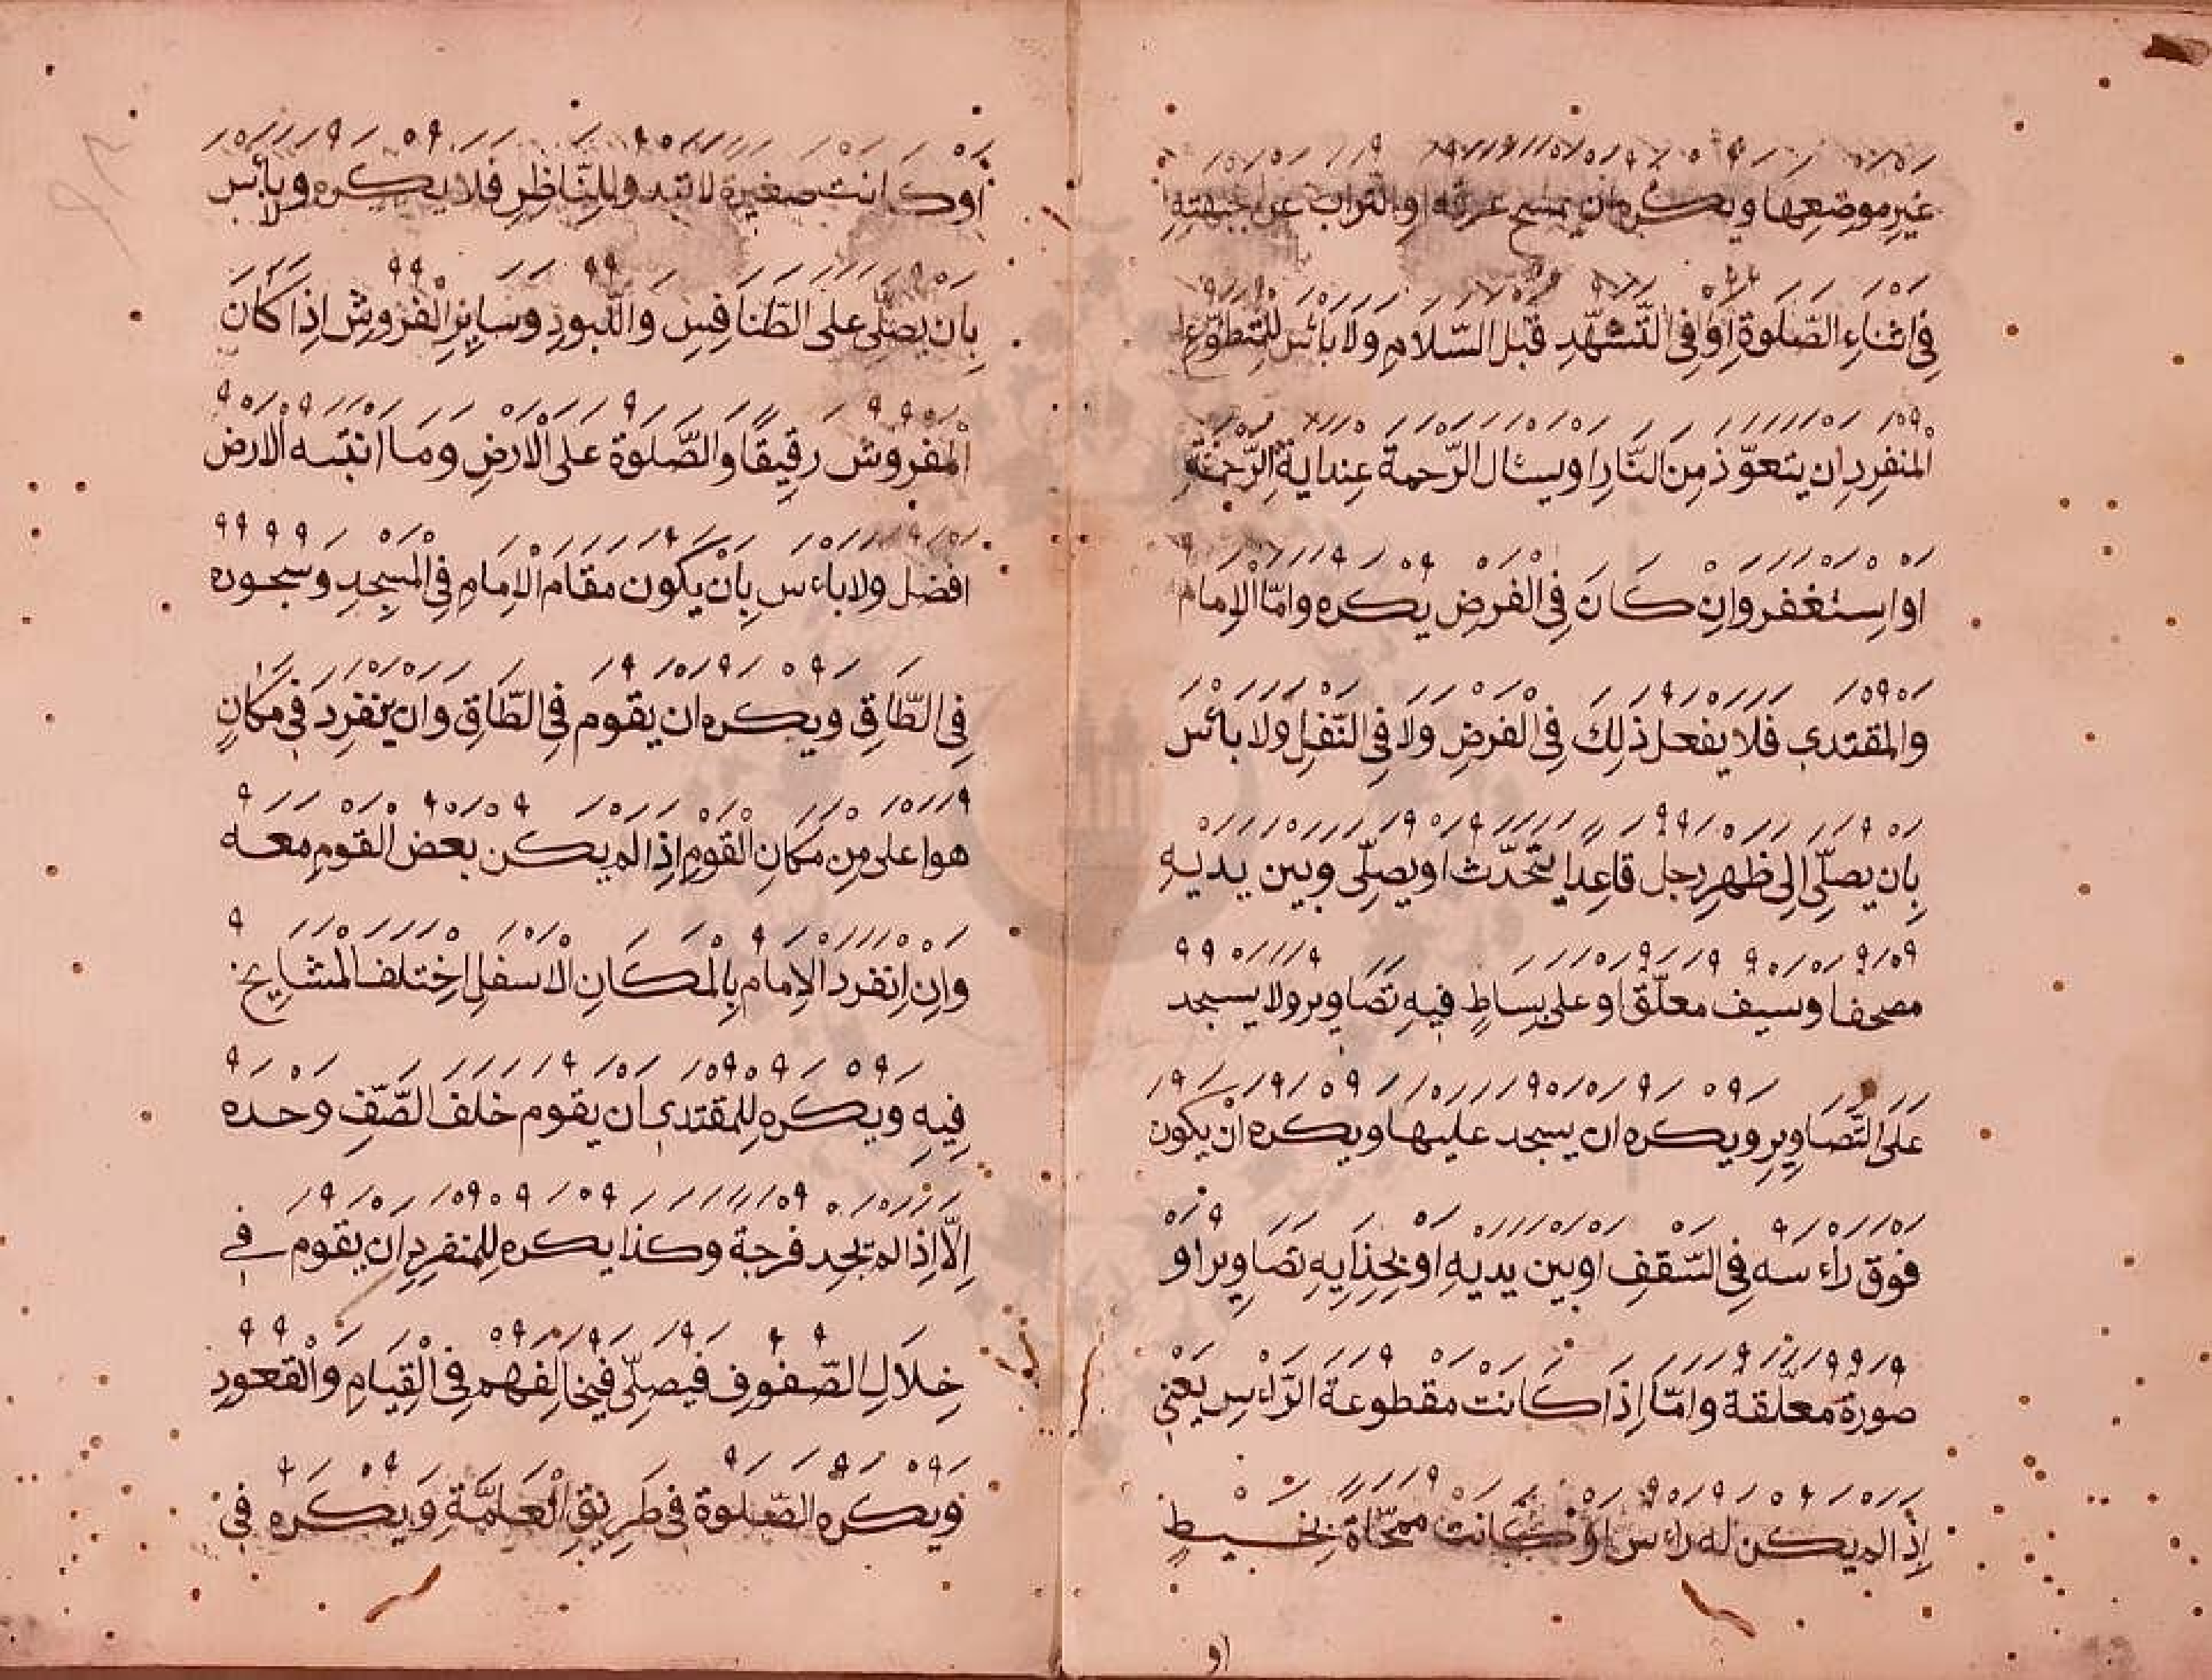 غيرِ موضِعِها ويكره ان يمسح عرقه او التّراب عن جبهتِهِ
فِي اثناءِ الصّلوةِ اَوْ فِى التّشهّدِ قبْل السّلامِ ولا بائس للمتطوّع
الْمنفرِدِ ان يتعوّذ مِن النّارِ او يسئال الرّحمة عِند ايةِ الرّحمةِ
او اِستغفر وَاِنْ كَانَ فِى الْفرضِ يكره وامّا الْاِمام
والمقتدى فلا يفعل ذلِك فِى الْفرضِ ولا فِى النّفلِ ولا بائس
بِان يصلّى اِلى ظهرِ رجل قاعِدا يتحدّث او يصلّى وبين يديهِ
مصحفا وسيف معلّق او على بِساطٍ فيهِ تصاوير ولا يسجد
على التّصاوِيرِ ويكره ان يسجد عليها ويكره انْ يكون
فوق راءسه فِى السّقفِ او بين يديهِ او بِحِذايِهِ تصاوِير او
صورة معلّقة وامّا اِذا كانتْ مقطوعة الرّاءسِ يعْنِى
اِذا لم يكن له راءس اوْ كانت ممحّاة بِخيطٍ
او
اوْ كانت صغيرة لا تبدو لِلنّاظِرِ فلا يكره ولا بأس
بِان يصلّى على الطّنافِسِ وَاللّبودِ وسايِرِ الْفروشِ اِذا كَانَ
الْمفروش رقِيقًا وَالصّلوة على الْارضِ وما انبته الْارض
افضل ولا باءس بِانْ يكون مقام الاِمامِ فِى الْمسجِدِ وسجوده
فِى الطّاقِ ويكره ان يقوم فِى الطّاقِ وَان ينفرِد فِى مكانٍ
هو اعلى مِن مكانِ القومِ اِذا لم يكن بعض القومِ معه
وَاِن اِنفرد الاِمام بِالْمكانِ الاسفلِ اخِتلف الْمشايِخ
فِيهِ ويكره لِلمقتدى ان يقوم خلف الصّفّ وحده
اِلّا اِذا لم يجِد فرجة وكذا يكره لِلمنفرِدِ ان يقوم فِى
خِلالِ الصّفوفِ فيصلّى فيخالِفهم فِى الْقِيامِ وَالْقعودِ
ويكره الصّلوة فِى طرِيقِ الْعامّةِ وَيكره فِى